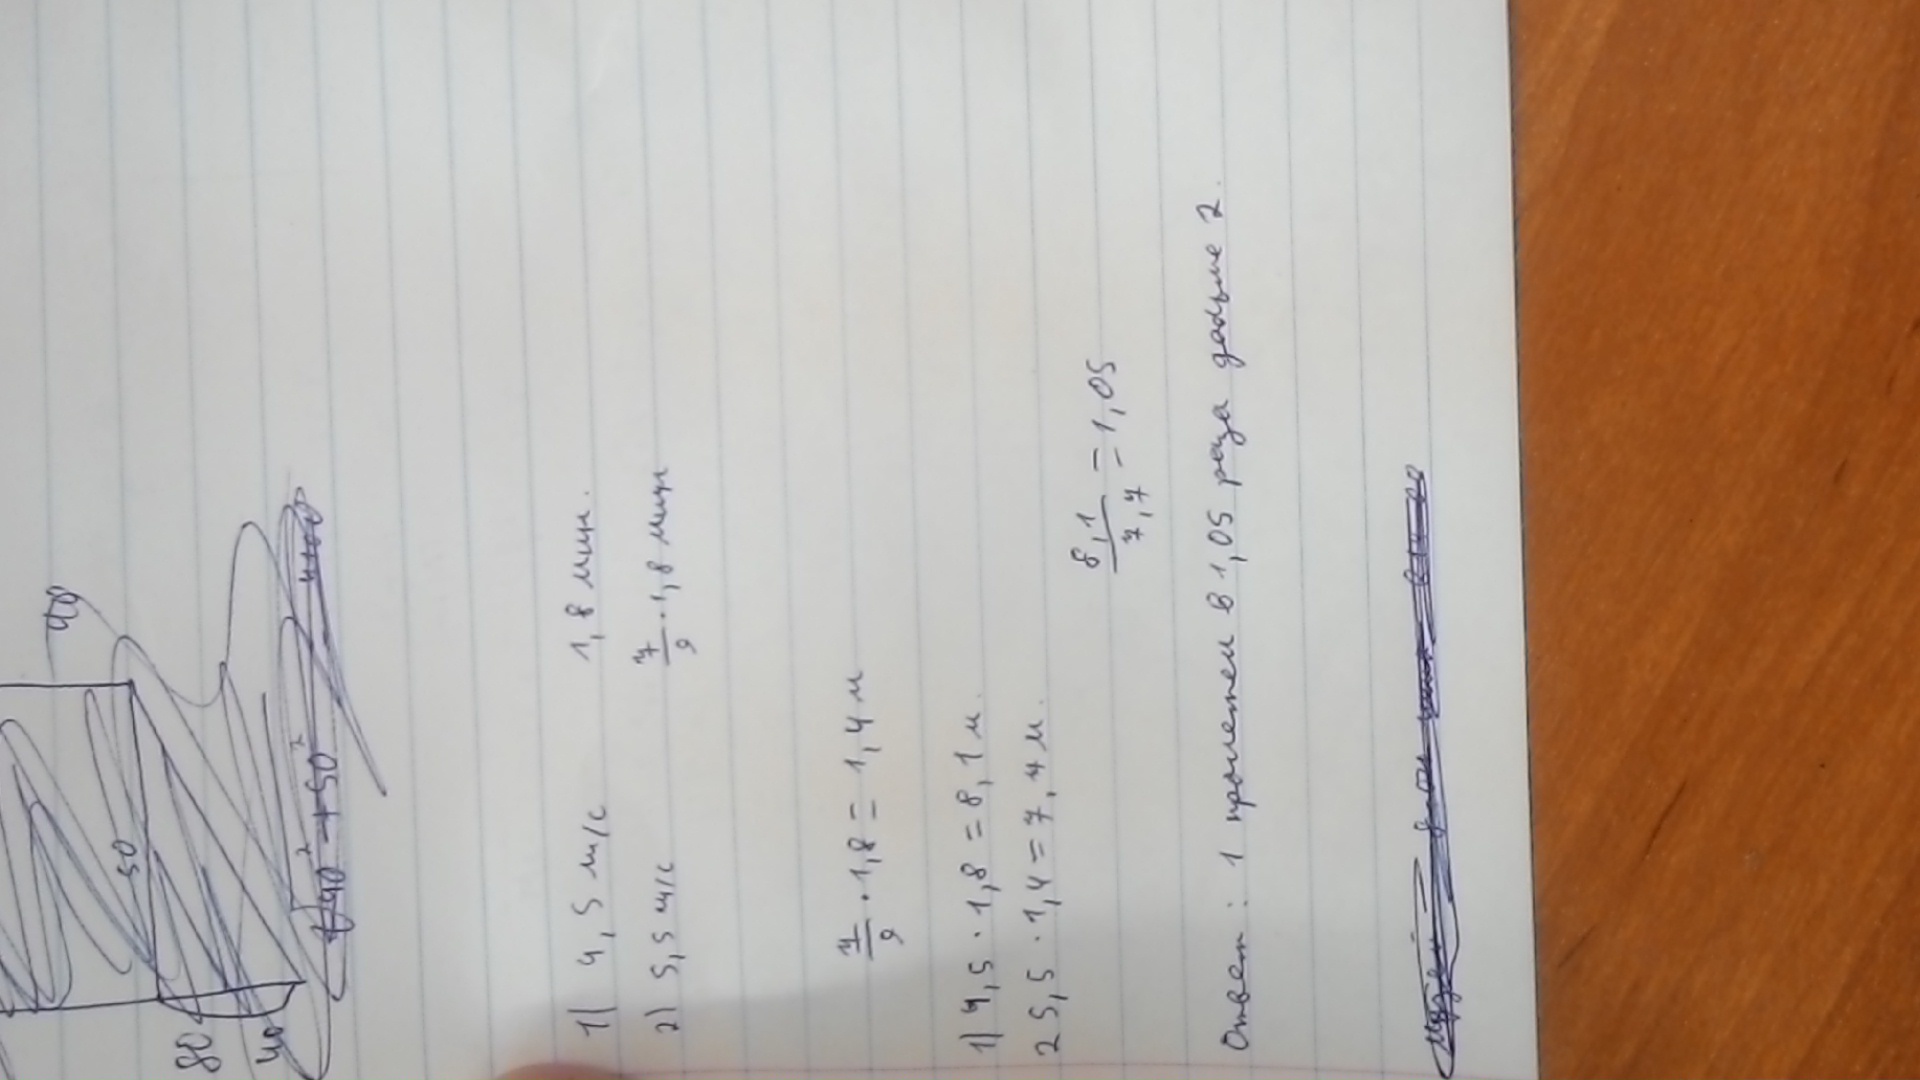 40
50
80
40
√40² + 50² 4100
1) 4,5 м/с 1,8 мин.
2) 5,5 м/с 7/9 · 1,8 мин
7/9 · 1,8 = 1,4 м
1) 4,5 · 1,8 = 8,1 м.
2 5,5 · 1,4 = 7,7 м.
8,1/7,7 = 1,05
Ответ: 1 пролетел в 1,05 раза дальше 2.